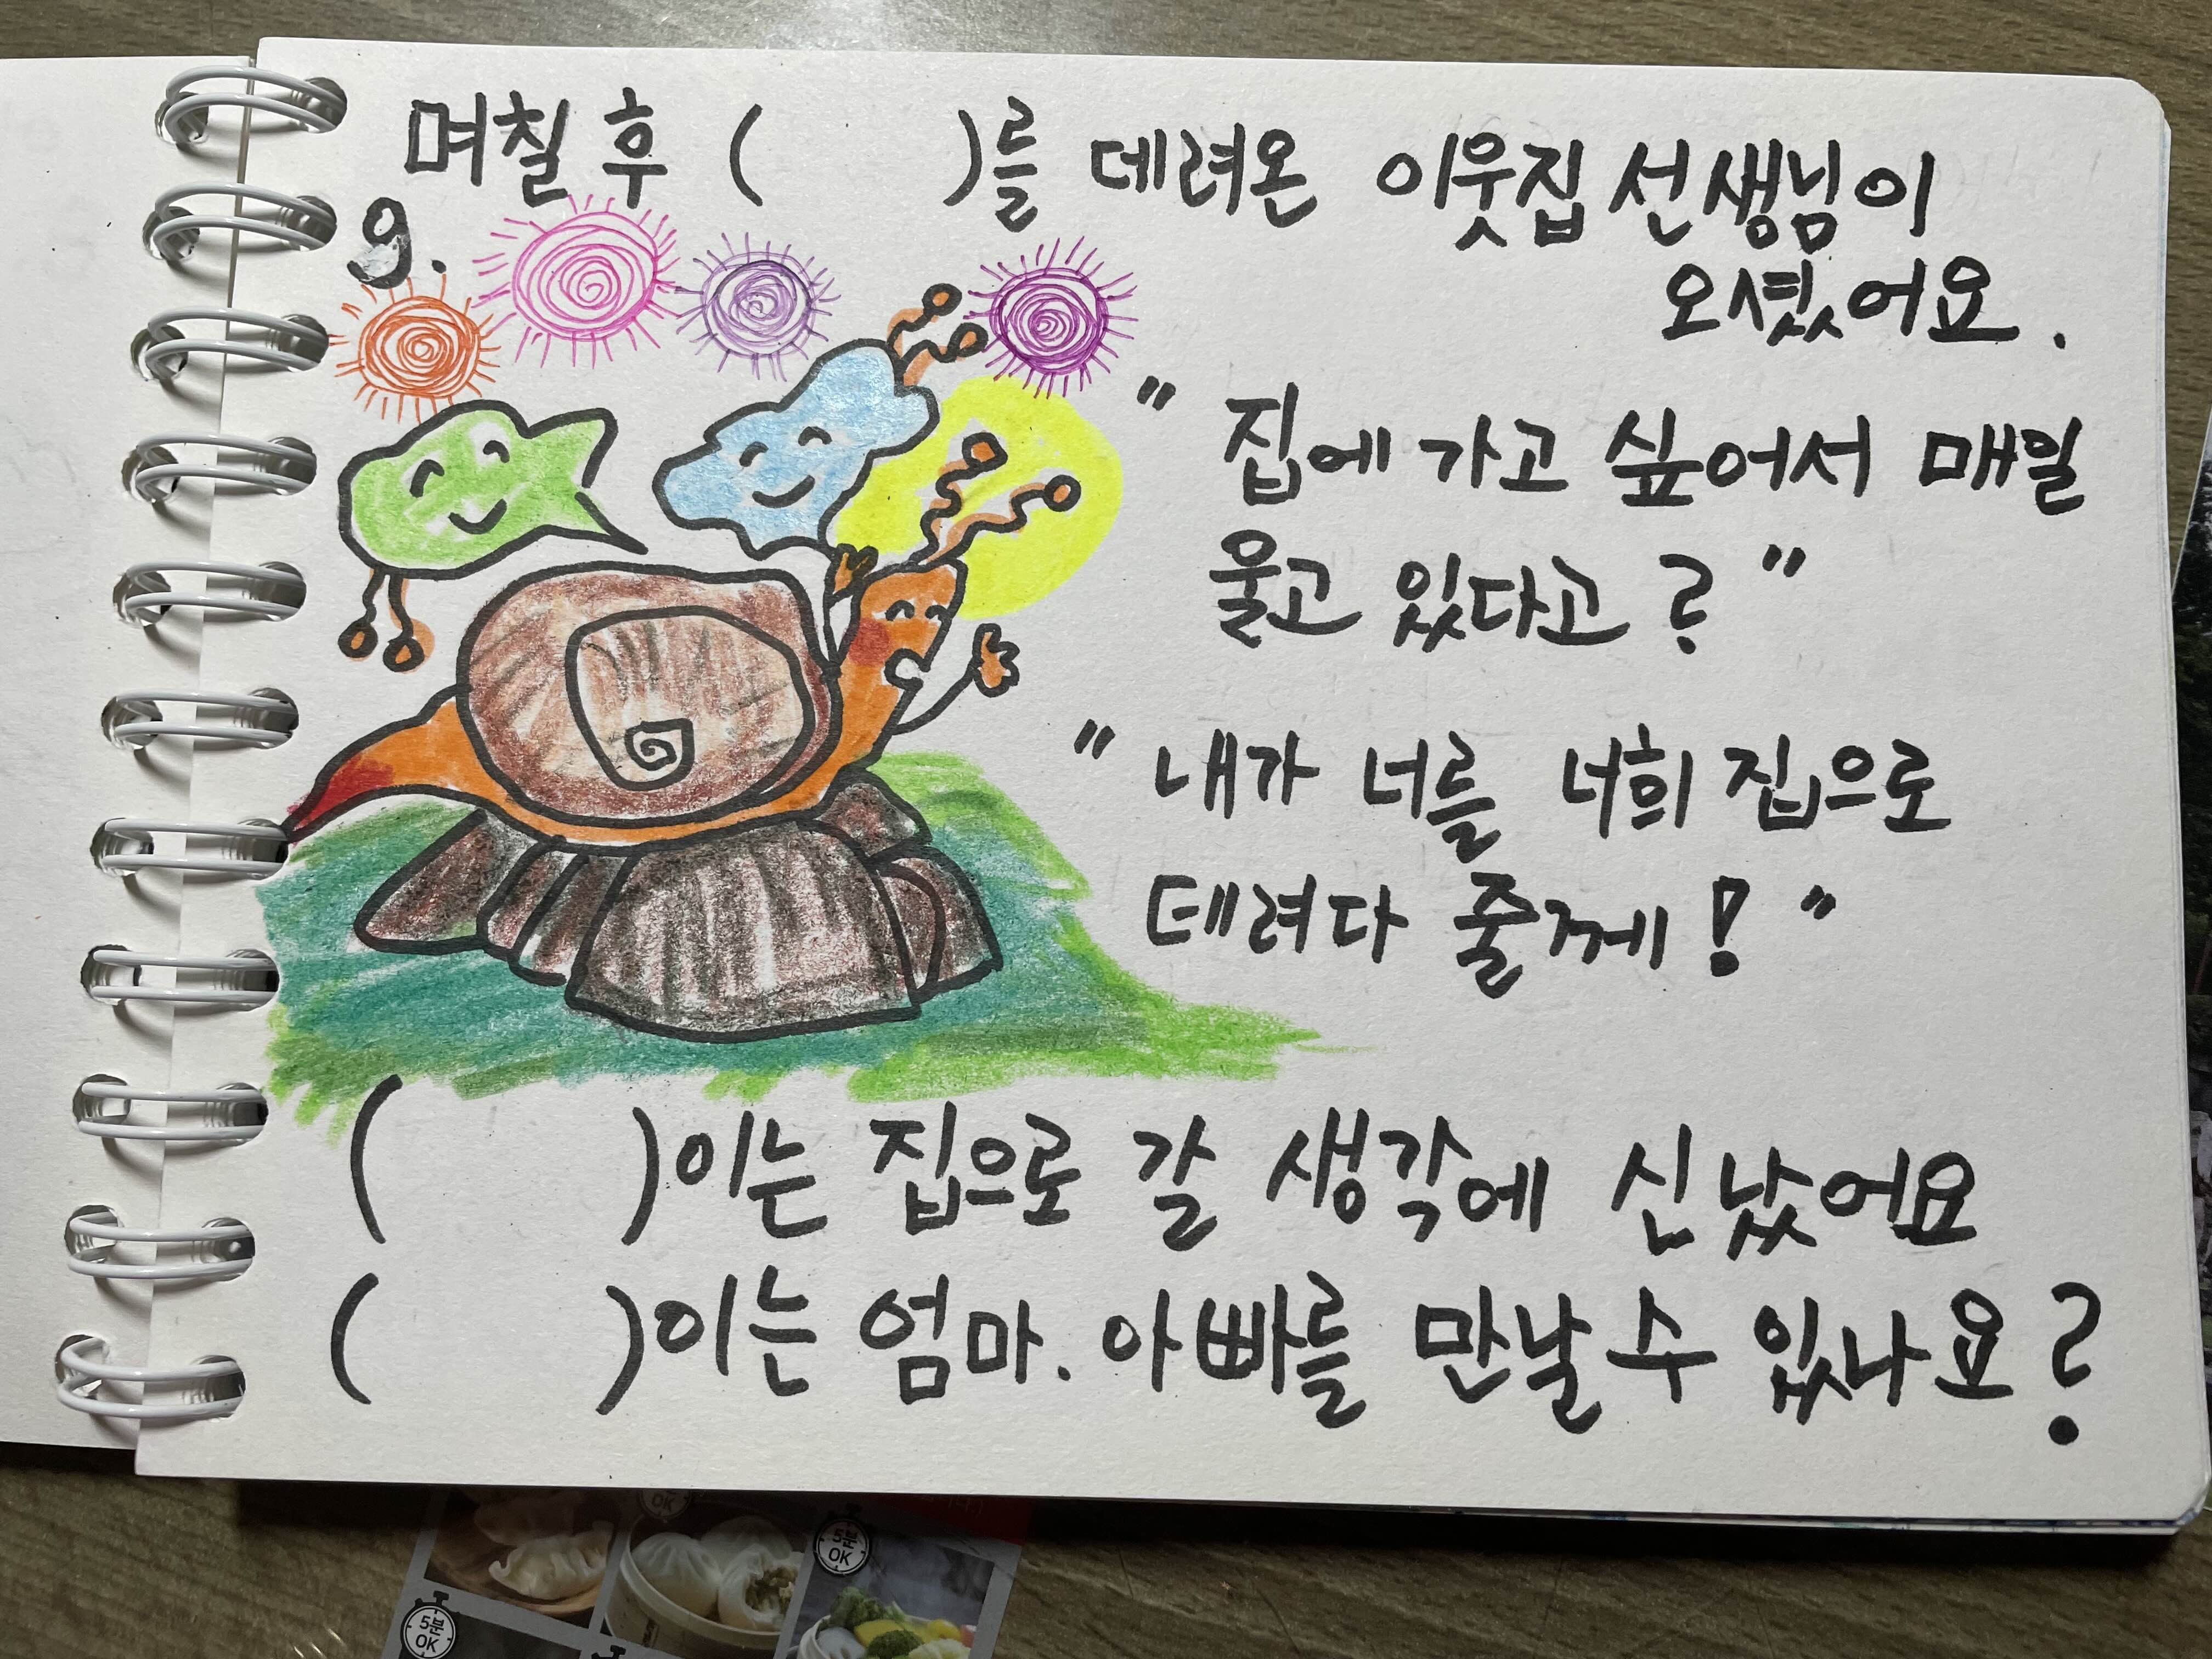 며칠 후 (        )를 데려온 이웃집 선생님이
오셨어요.
9.
" 집에 가고 싶어서 매일
울고 있다고? "
" 내가 너를 너희 집으로
데려다 줄께! "
(        )이는 집으로 갈 생각에 신났어요
(        )이는 엄마. 아빠를 만날 수 있나요?
OK
5분
OK
5분
OK